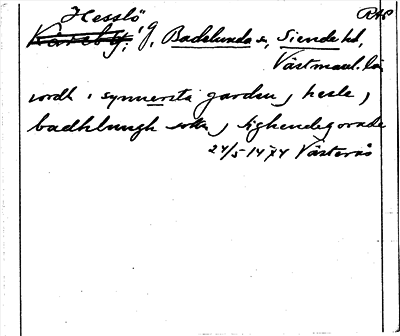 Hesslö RAP
Käreby, g, Badelunda s, Siende hd,
Västmanl. län
iordh i synnersta garden, hesle,
badhlungh sokn, sighendegorade
24/5 1474 Västerås